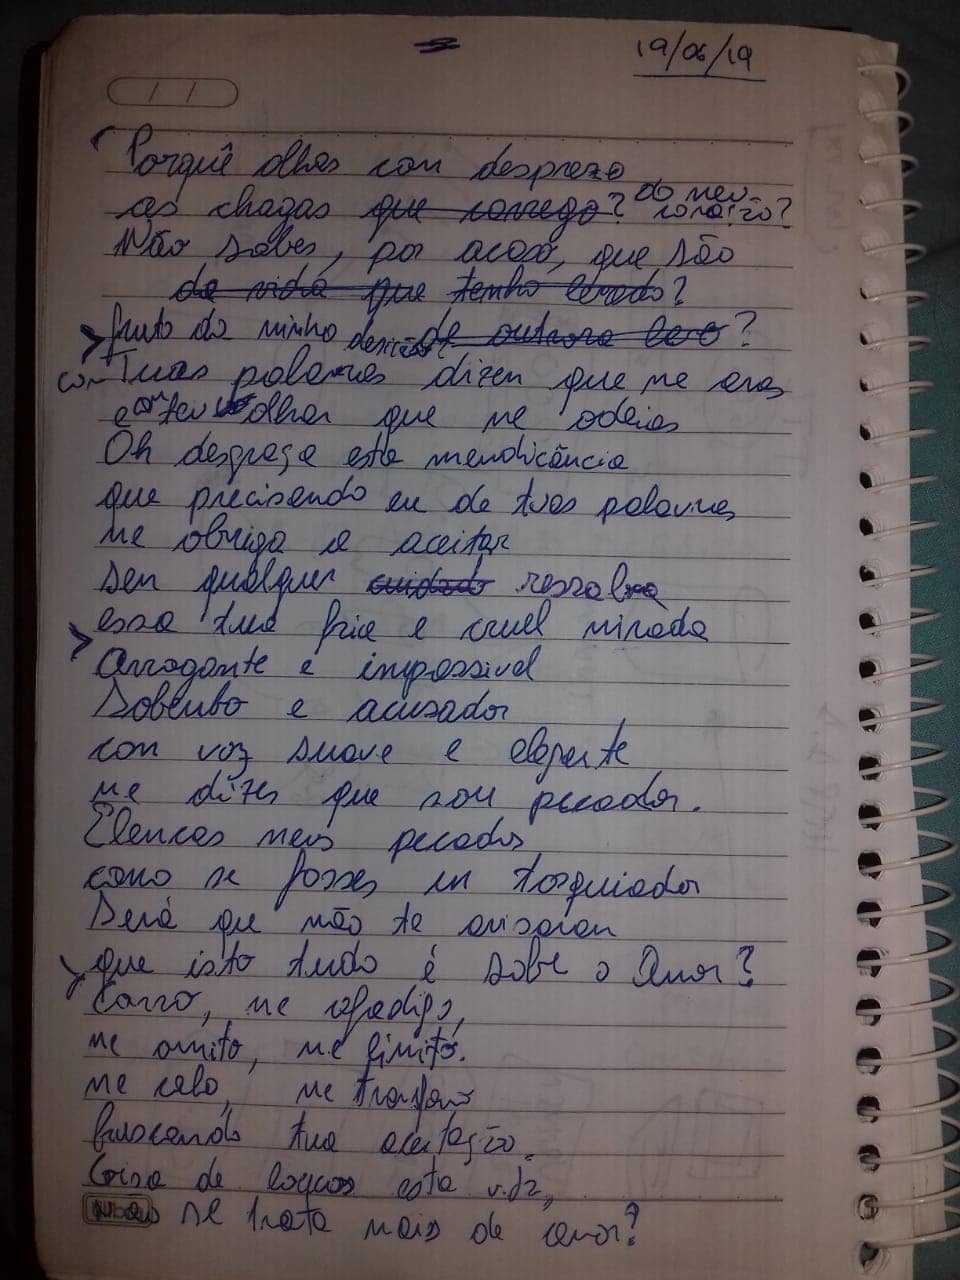 19/06/19
Porquê olhas com desprezo
as chagas que carrego? do meu coração?
Não sabes, por acaso, que são
da vida que tenho levado?
fruto da minha de outrora ?
com Tuas palavras dizem que me amas
e com teu olhar que me odeias
Oh desgraça esta mendicância
que precisando eu de tuas palavras
me obriga a aceitar
sem qualquer cuidado ressalva
essa tua fria e cruel mirada
Arrogante e impossivel
Soberbo e acusador
com voz suave e elegante
me dizes que sou pecador.
Elencas meus pecados
como se fosses um
Será que não te avisaram
que isto tudo é sobre o Amor?
Corro, me afadigo,
me omito, me limito.
me calo, me
buscando tua aceitação.
Coisa de loucos esta vida,
não se trata mais de amor?